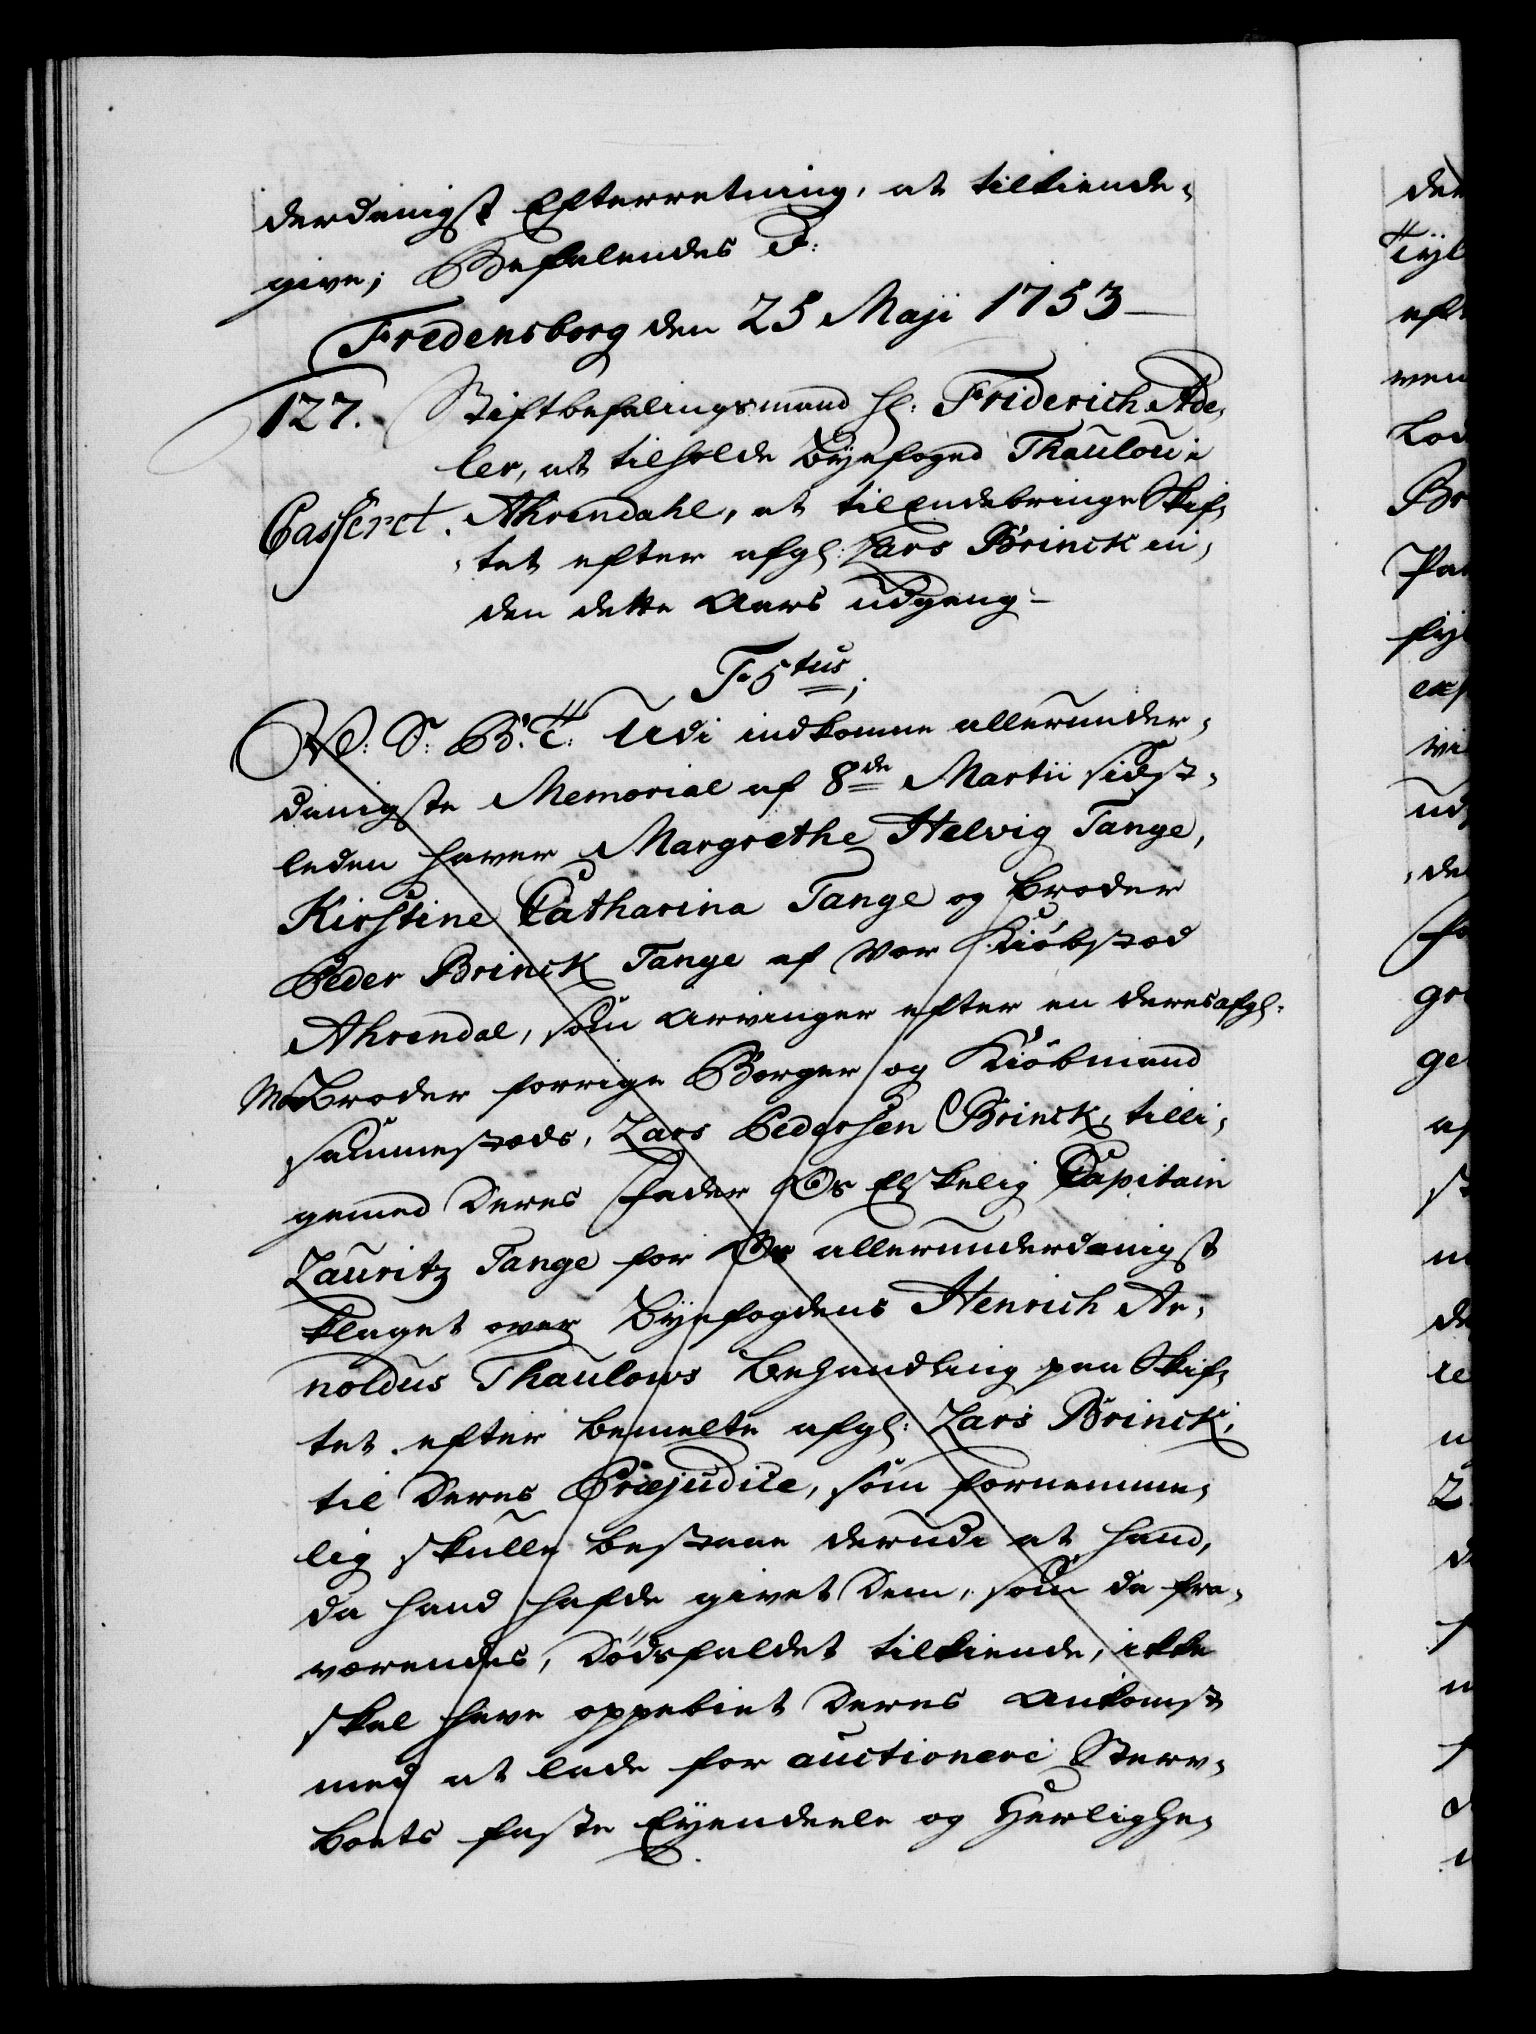 derdanigst Efterretning, at tilkiende-
give; Befalendes P:
Fredensborg den 25 Maji 1753
127. Stiftbefalingsmand H: Friderich Ade-
ler, at tilholde Byefoged Thaulou i
Casseret. Ahrendahl, at tilEndebringe Skif-
tet efter afg: Lars Brinck in-
den dette Aars udgang-
F5tus;
W: S: B: T: Udi indkomne allerunder-
danigste Memorial af 8de Martii sidst-
leden haver Margrethe Helvig Tange,
Kirstine Catharina Tange og Broder
Peder Brinck Tange af Vor Kiöbstad
Ahrendal, som Arvinger efter en deres afg:
MorBroder forrige Borger og Kiöbmand
sammesteds, Lars Pedersen Brinck, tilli-
gemed deres Fader Os Elskelig Capitain
Lauritz Tange for Os allerunderdanigst
klaget over Byefogdens Henrich Ar-
noldus Thaulows Behandling paa Skif-
tet efter bemelte afg: Lars Brinck,
til deres Præjudice, som fornemme-
lig skulle bestaae derudi at hand,
da hand hafde givet dem, som da fra-
værendes, Dödsfaldet tilkiende, ikke
skal have oppebiet deres Ankomst
med at lade for auctionere Sterv-
boets faste Eyendeele og Herlighe-